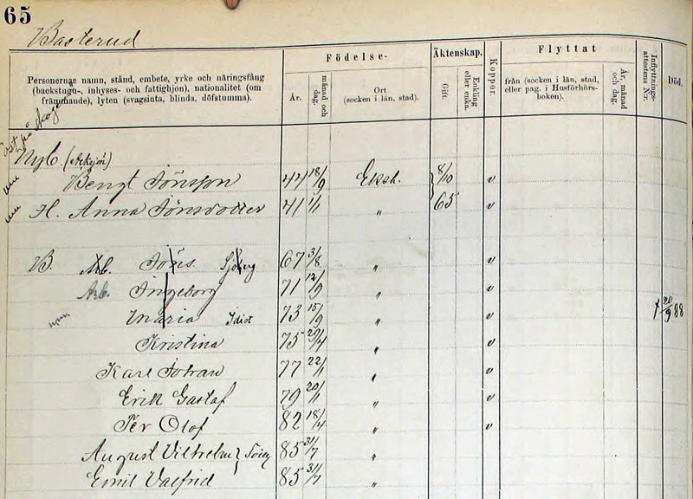 65
Basterud
Födelse-
Äktenskap.
Koppor.
Flyttat
Inflyttnings-
attestens Nr.
Död.
Personernas namn, stånd, embete, yrke och näringsfång
(backstugu-, inhyses- och fattighjon), nationalitet (om
främmande), lyten (svagsinta, blinda, döfstumma).
År.
månad och
dag.
Ort
(socken i län, stad).
Gift.
Enkling
eller enka.
från (socken i län, stad,
eller pag. i Husförhörs-
boken).
År, månad
och dag.
Nyb
Bengt Jönsson 47 18/9 Eksh. 8/10 v
H. Anna Jönsdotter 41 1/1 " 65 v
B. Arb. Jöns. Sjöberg 67 3/8 " v
Arb. Ingeborg 71 12/9 " v
Maria Idiot 73 15/9 " v † 20/9 88
Kristina 75 29/4 " v
Karl Johan 77 22/1 " v
Erik Gustaf 79 20/1 " v
Per Olof 82 18/4 " v
August Vilhelm 85 31/7 "
Emil Valfrid 85 31/7 "